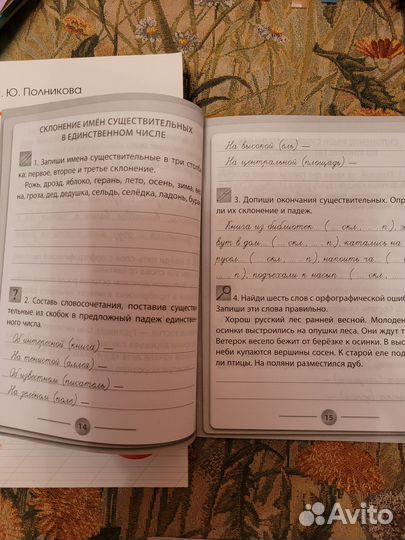 Ю. Полникова
СКЛОНЕНИЕ ИМЁН СУЩЕСТВИТЕЛЬНЫХ
В ЕДИНСТВЕННОМ ЧИСЛЕ
1. Запиши имена существительные в три столб
ка: первое, второе и третье склонение.
Рожь, дрозд, яблоко, герань, лето, осень, зима, ве
на, гроза, дед, дедушка, сельдь, селёдка, ладонь, бура
2. Составь словосочетания, поставив существи
тельные из скобок в предложный падеж единствен
ного числа.
Об интересной (книга) —
На тенистой (аллея) —
Об известном (писатель) —
На зелёном (поле) —
14
На высокой (ель) —
На центральной (площадь) —
3. Допиши окончания существительных. Опр
ли их склонение и падеж.
Книга из библиотек ( скл., п.), ж
вут в дом.. ( скл., п.), катались на
русел ( скл., п.), напоить га (
п.), подъехали к насып ( скл.,
4. Найди шесть слов с орфографической ошиб
Запиши эти слова правильно.
Хорош русский лес ранней весной. Молоден
осинки выстроились на опушки леса. Они ждут т
Ветерок весело бежит от берёзке к осинки. В выс
неби купаются вершины сосен. К старой еле под
ли птицы. На поляни разместился дуб.
15
Avito